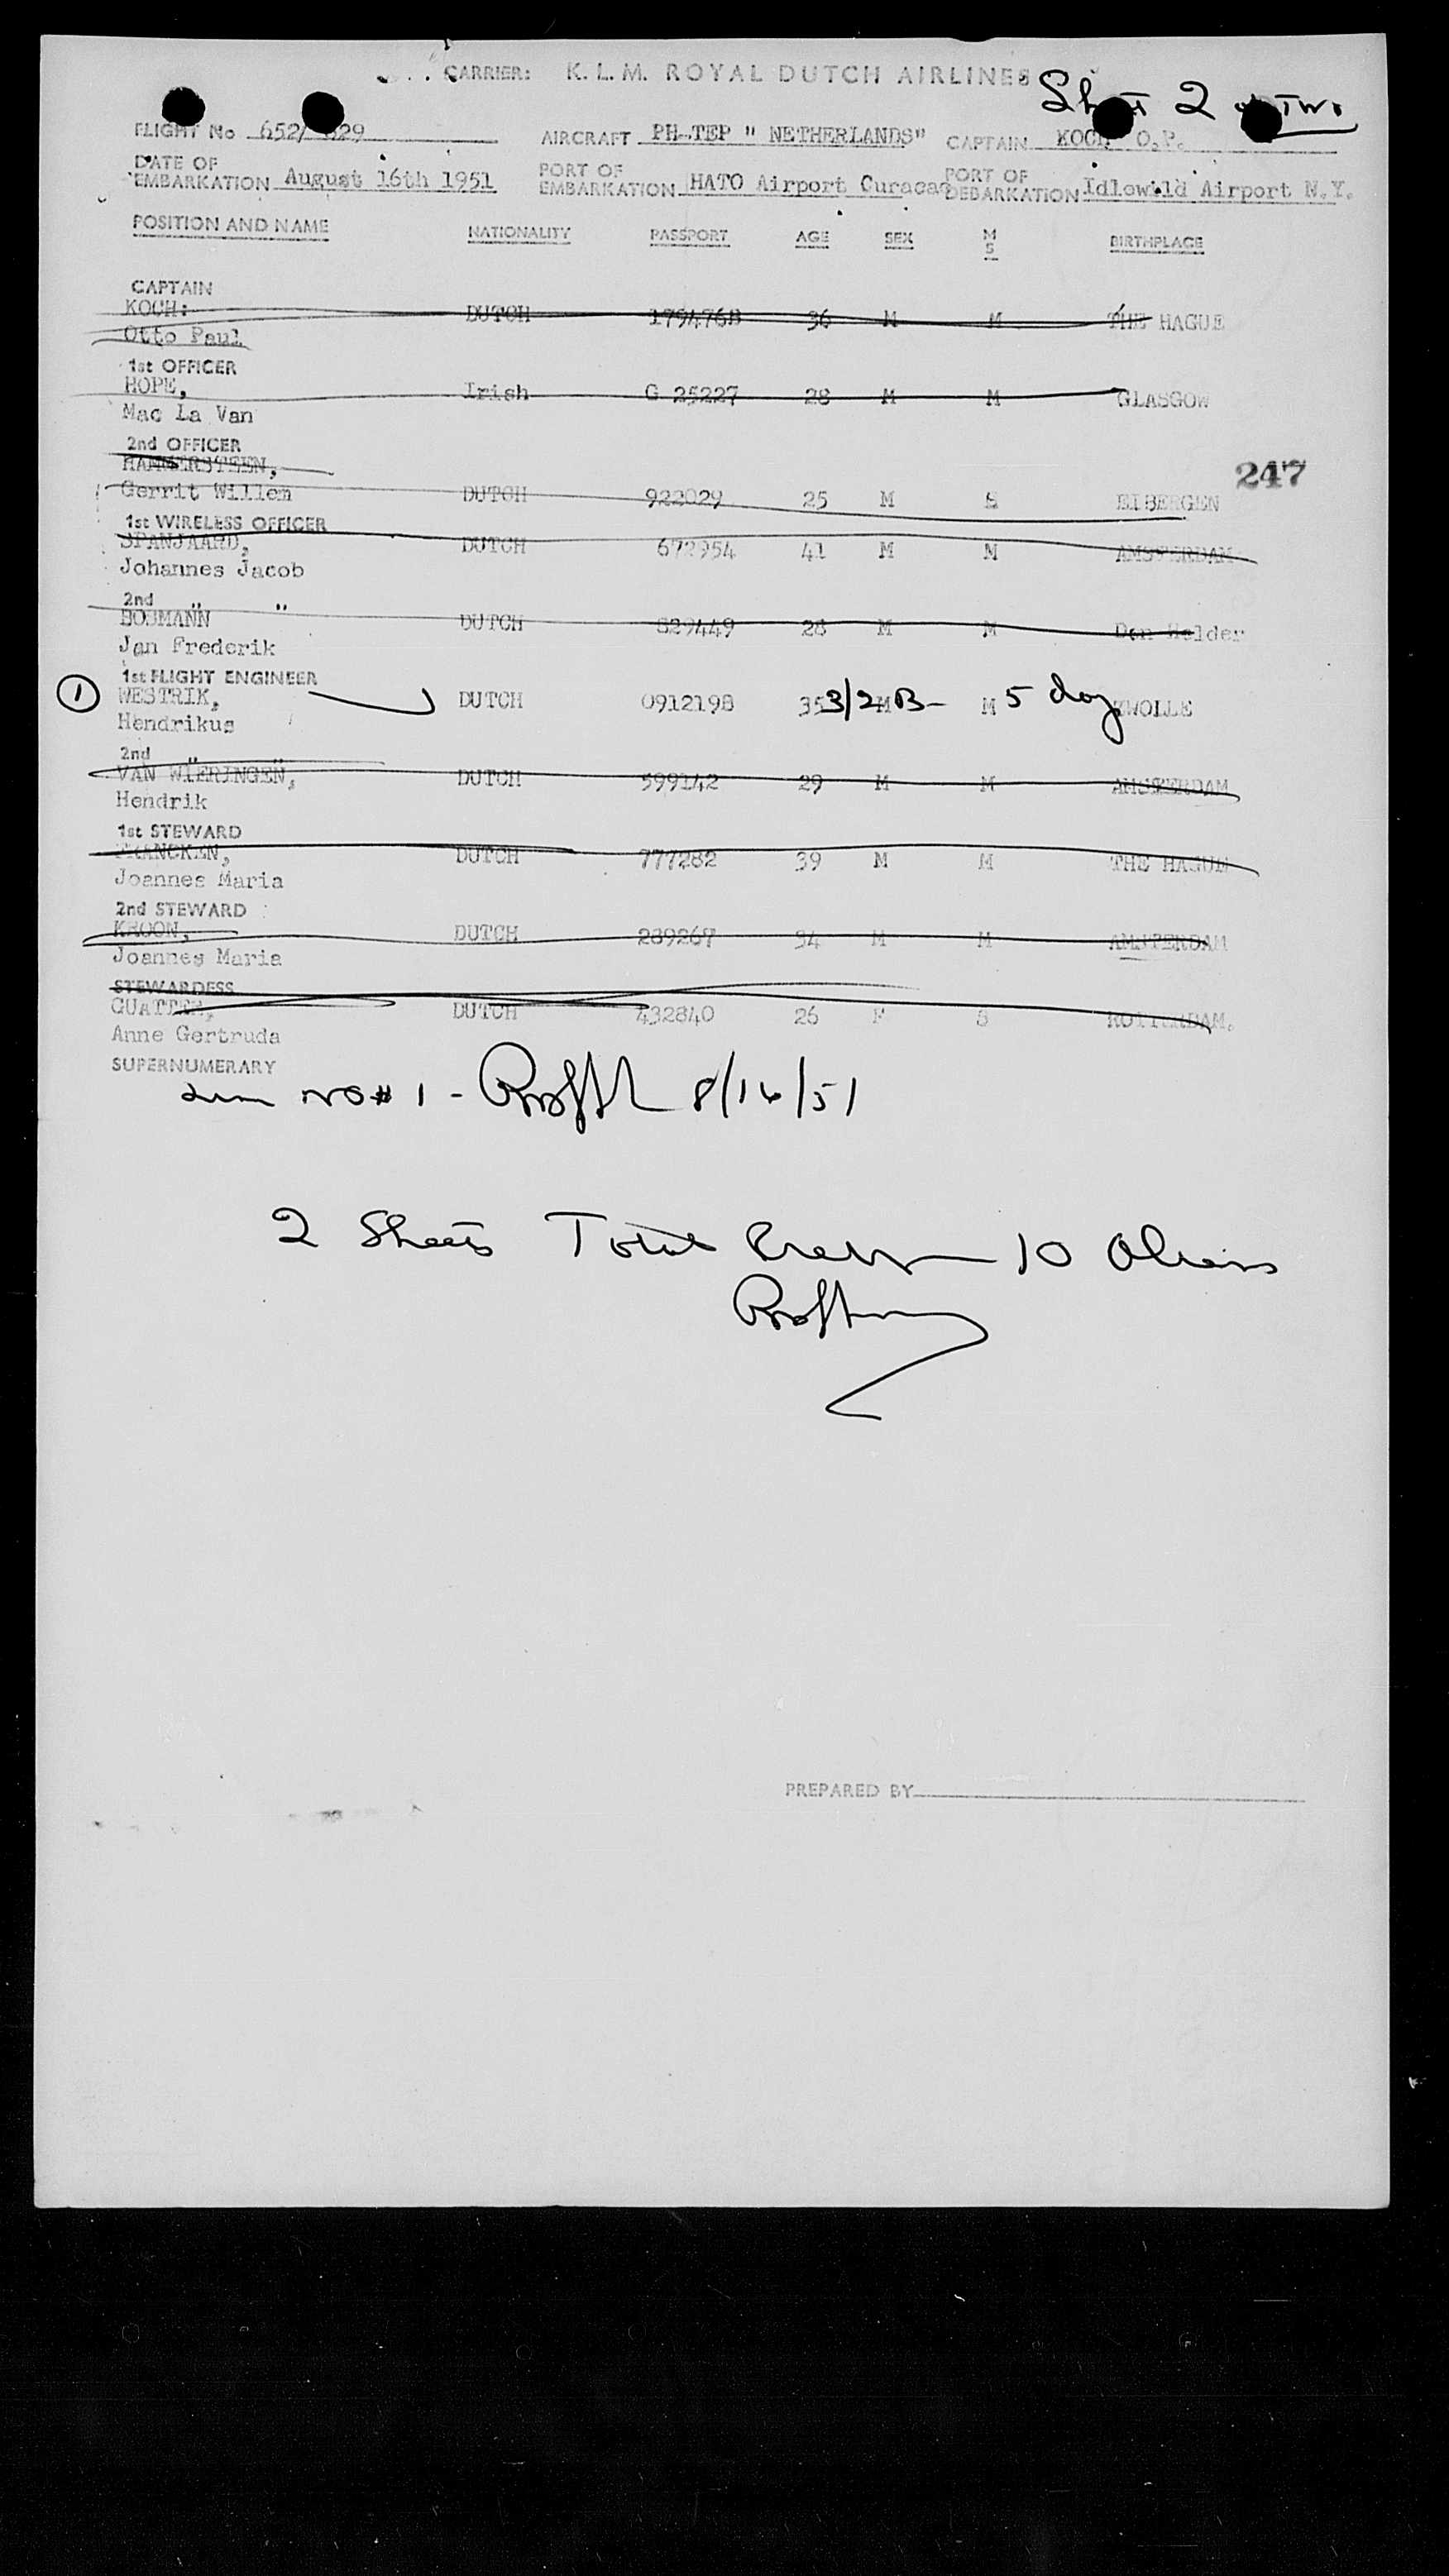 CARRIER: K. L. M. ROYAL DUTCH AIRLINES
2
FLIGHT No 652/ 629 AIRCRAFT PH-TEP " NETHERLANDS" CAPTAIN KOCH O.P.
DATE OF EMBARKATION August 16th 1951 PORT OF EMBARKATION HATO Airport Curacao PORT OF DEBARKATION Idlewild Airport N.Y.
POSITION AND NAME NATIONALITY PASSPORT AGE SEX M S BIRTHPLACE
CAPTAIN
KOCH: DUTCH 179476B 36 M M THE HAGUE
Otto Paul
1st OFFICER
HOPE, Irish G 25227 28 M M GLASGOW
Mac La Van
2nd OFFICER
HAMMERSTEEN,
247
Gerrit Willem DUTCH 922029 25 M S EIBERGEN
1st WIRELESS OFFICER
SPANJAARD, DUTCH 672954 41 M M AMSTERDAM
Johannes Jacob
2nd " "
BOSMANN DUTCH 829449 28 M M Den Helder
Jan Frederik
1st FLIGHT ENGINEER
1 WESTRIK, DUTCH 091219B 35 3/2 M B- M 5 day ZWOLLE
Hendrikus
2nd " "
VAN WIERINGEN, DUTCH 599142 29 M M AMSTERDAM
Hendrik
1st STEWARD
FRANCKEN, DUTCH 777282 39 M M THE HAGUE
Joannes Maria
2nd STEWARD
KROON, DUTCH 289267 34 M M AMSTERDAM
Joannes Maria
STEWARDESS
DUTCH 432840 26 F S ROTTERDAM.
Anne Gertruda
SUPERNUMERARY
No # 1 - 8/16/51
2 Sheets Total 10 Aliens
PREPARED BY